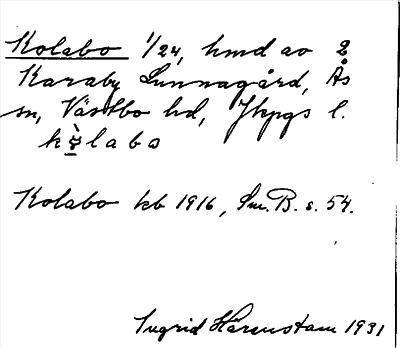 Kolabo 1/24, hmd av 2
Karaby Sunnagård, Ås
sn, Västbo hd, Jkpgs l.
kɷ̀labo
Kolabo kb 1916, Sm.B. s. 54.
Ingrid Härenstam 1931